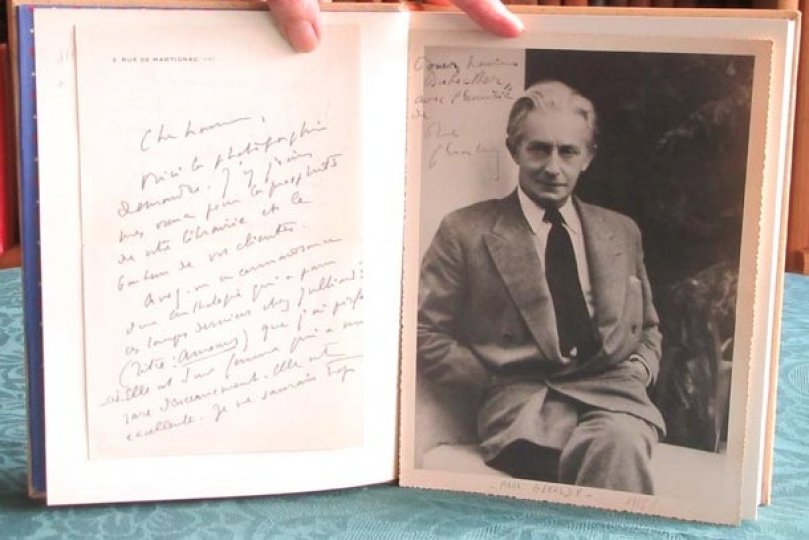 5, RUE DE MARTIGNAC (VIIe)
Cher Monsieur,
Voici la photographie
demandée. J'y joins
mes vœux pour la prospérité
de votre librairie et le
bonheur de vos clientes.
Avez-vous connaissance
d'une anthologie qui a paru
ces temps derniers chez Julliard ?
(titre : Amour) que j'ai préfa
cée. Elle est d'une femme qui a un
rare discernement. Elle est
excellente. Je ne saurais trop
avec l'amitié
de
Paul
Géraldy
- PAUL GERALDY -